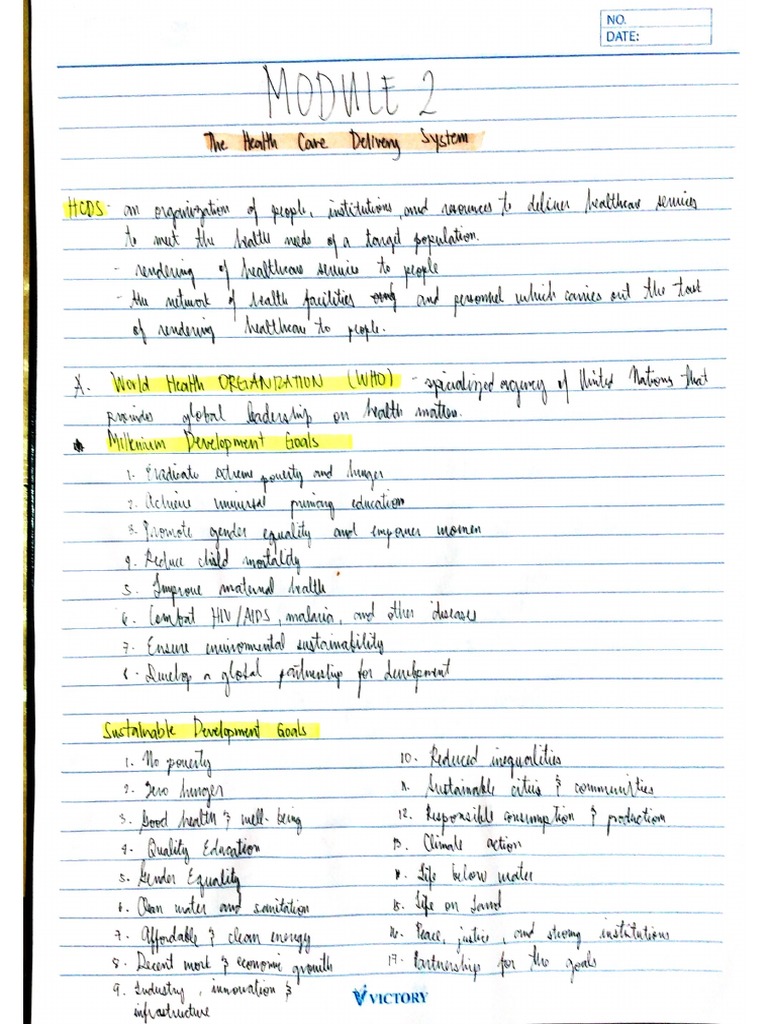 NO.
DATE:
MODULE 2
The Health Care Delivery System
HCDS - an organization of people, institutions, and resources to deliver healthcare services
to meet the health needs of a target population.
- rendering of healthcare services to people
- the network of health facilities and personnel which carries out the task
of rendering healthcare to people.
A. World Health ORGANIZATION (WHO) - specialized agency of United Nations that
provides global leadership on health matters.
* Millenium Development Goals
1. Eradicate extreme poverty and hunger
2. Achieve universal primary education
3. Promote gender equality and empower women
4. Reduce child mortality
5. Improve maternal health
6. Combat HIV/AIDS, malaria, and other diseases
7. Ensure environmental sustainability
8. Develop a global partnership for development
Sustainable Development Goals
1. No poverty
2. Zero hunger
3. Good health & well-being
4. Quality Education
5. Gender Equality
6. Clean water and sanitation
7. Affordable & clean energy
8. Decent work & economic growth
9. Industry, innovation &
infrastructure
10. Reduced inequalities
11. Sustainable cities & communities
12. Responsible consumption & production
13. Climate action
14. Life below water
15. Life on land
16. Peace, justice, and strong institutions
17. Partnership for the goals
VICTORY